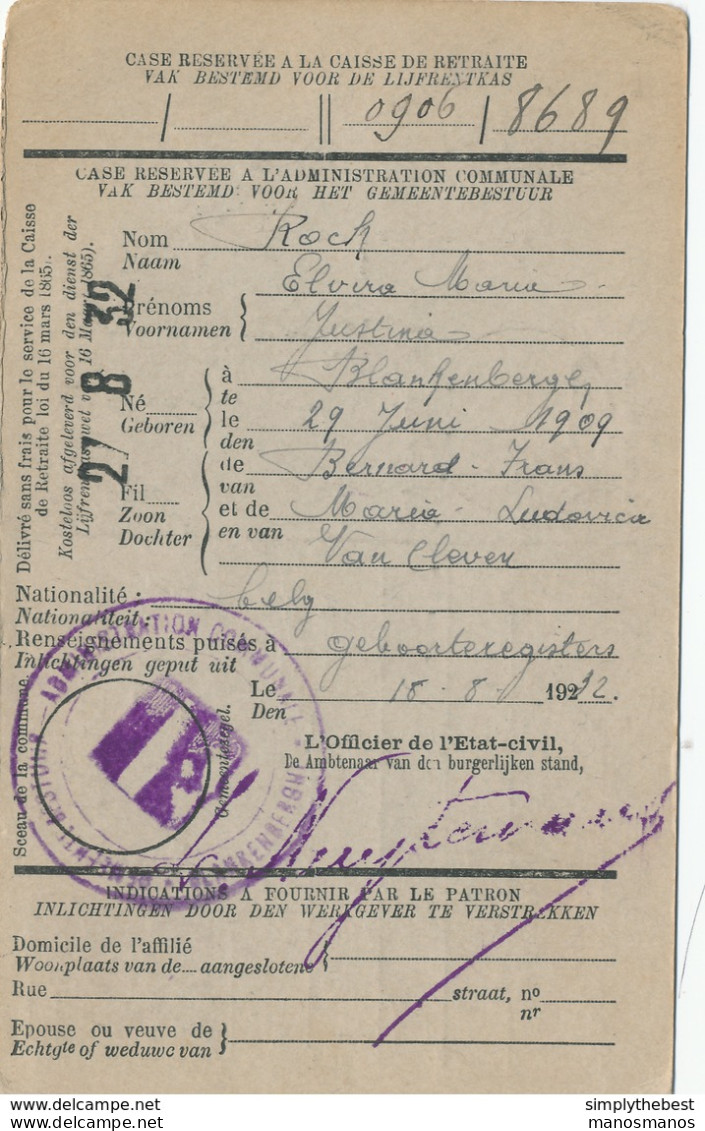 CASE RESERVÉE A LA CAISSE DE RETRAITE
VAK BESTEMD VOOR DE LIJFRENTKAS
/ || 0906 / 8689
CASE RESERVEE A L'ADMINISTRATION COMMUNALE
VAK BESTEMD VOOR HET GEMEENTEBESTUUR
Délivré sans frais pour le service de la Caisse
de Retraite loi du 16 mars 1865).
Kosteloos afgeleverd voor den dienst der
27 8 32
Nom Kock
Naam
Elvira Maria
Prénoms
Voornamen
Justina
à Blankenberge,
te
Né
Geboren
le 29 Juni 1909
den
de Bernard - Frans
van
Fil
Zoon
Dochter
et de Maria - Ludovica
en van
Van Cleven
Nationalité : belg
Nationaliteit :
Renseignements puisés à geboorteregisters
Inlichtingen geput uit
Le 18 - 8 - 1932.
Den
Sceau de la commune
Gemeentezegel.
ADMINISTRATION COMMUNALE
BLANKENBERGHE
L'Officier de l'Etat-civil,
De Ambtenaar van den burgerlijken stand,
INDICATIONS A FOURNIR PAR LE PATRON
INLICHTINGEN DOOR DEN WERKGEVER TE VERSTREKKEN
Domicile de l'affilié
Woonplaats van de.... aangeslotene
Rue straat, no
nr
Epouse ou veuve de
Echtgte of weduwe van
simplythebest
manosmanos